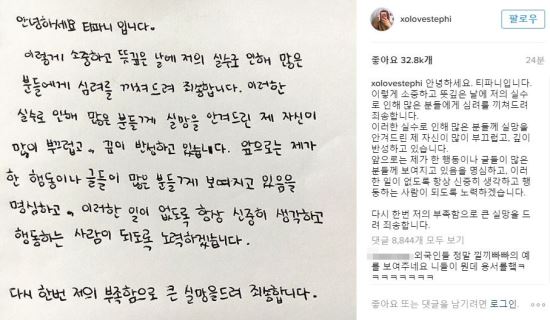 안녕하세요 티파니 입니다.
이렇게 소중하고 뜻깊은 날에 저의 실수로 인해 많은
분들에게 심려를 끼쳐드려 죄송합니다. 이러한
실수로 인해 많은 분들께 실망을 안겨드린 제 자신이
많이 부끄럽고, 깊이 반성하고 있습니다. 앞으로는 제가
한 행동이나 글들이 많은 분들께 보여지고 있음을
명심하고, 이러한 일이 없도록 항상 신중히 생각하고
행동하는 사람이 되도록 노력하겠습니다.
다시 한번 저의 부족함으로 큰 실망을드려 죄송합니다.
xolovestephi
팔로우
좋아요 32.8k개
24분
xolovestephi 안녕하세요. 티파니입니다.
이렇게 소중하고 뜻깊은 날에 저의 실수
로 인해 많은 분들에게 심려를 끼쳐드려
죄송합니다.
이러한 실수로 인해 많은 분들께 실망을
안겨드린 제 자신이 많이 부끄럽고, 깊이
반성하고 있습니다.
앞으로는 제가 한 행동이나 글들이 많은
분들께 보여지고 있음을 명심하고, 이러
한 일이 없도록 항상 신중히 생각하고 행
동하는 사람이 되도록 노력하겠습니다.
다시 한번 저의 부족함으로 큰 실망을 드
려 죄송합니다.
댓글 8,844개 모두 보기
외국인들 정말 낄끼빠빠의 예
를 보여주네요 니들이 뭔데 용서를핵ㅋ
ㅋㅋㅋㅋㅋㅋㅋ
좋아요 또는 댓글을 남기려면 로그인.